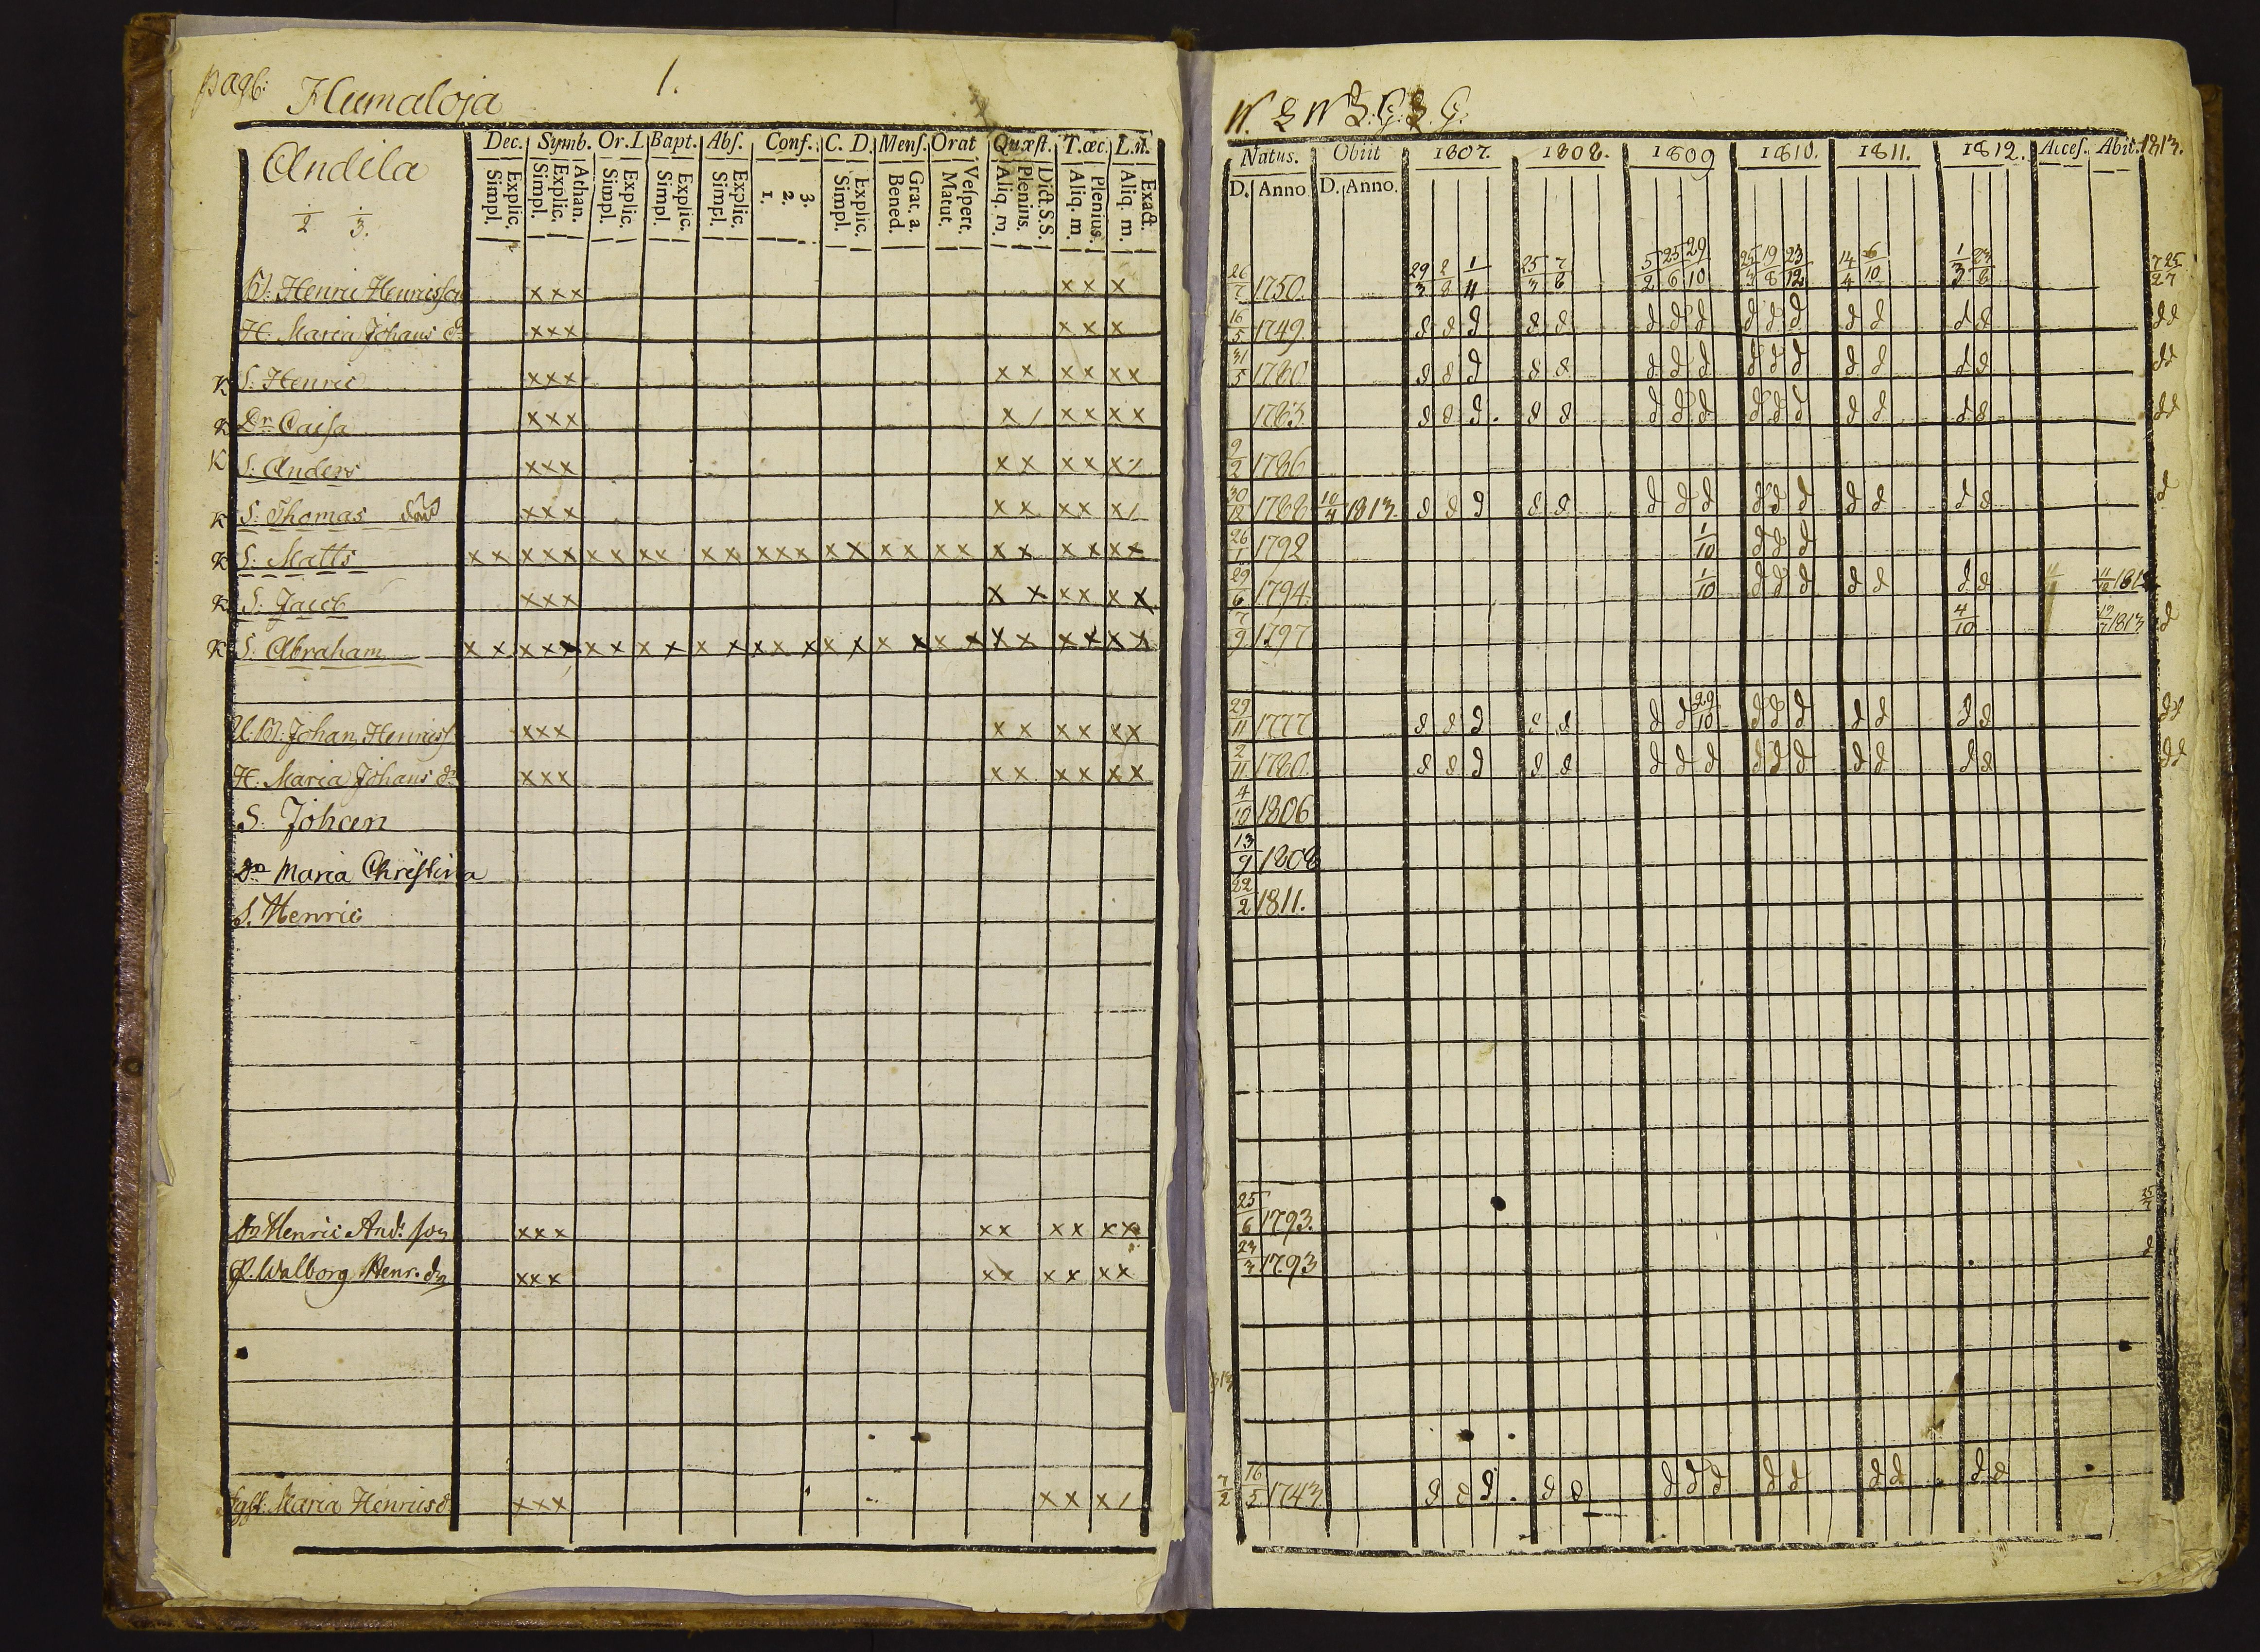 pag: Humaloja 1.
Andila
1/2 1/3.
Dec. Symb. Or. L Bapt. Abs. Conf. C. D. Mens. Orat Quæst. T. œc. L. n.
Simpl. Explic. Simpl. Explic. Athan. Simpl. Explic. Simpl. Explic. Simpl. Explic. 1. 2. 3. Simpl. Explic. Bened. Grat. a. Matut. Vespert. Aliq. m. Plenius. Dict. S.S. Aliq. m. Plenius. Aliq. m. Exact.
B: Henric Henricsson xxx xx x
H. Maria Johans dr xxx xx x
K S: Henric xxx xx xx xx
K Dr. Caisa xxx x/ xx xx
K S: Anders xxx xx xx x/
K S: Thomas död xxx xx xx x/
K S: Matts xx xxx xx xx xx xxx xx xx xx xx xx xx
K S: Jacob xxx xx xx xx
K S. Abraham xx xxx xx xx xx xxx xx xx xx xx xx xx
U.B: Johan Henricss xxx xx xx xx
H. Maria Johans dr xxx xx xx xx
S. Johan
Dr Maria Christina
S. Henric
Dr Henric And: son xxx xx xx xx
P. Walborg Henr. dr xxx xx xx xx
Maria Henricsd xxx xx x/
Natus. Obiit 1807. 1808. 1809 1810. 1811. 1812. Acces. Abit. 1813.
D. Anno D. Anno.
26/7 1750. 29/3 2/8 1/11 25/3 7/6 5/2 25/6 29/10 25/3 19/8 23/12 14/4 6/10 1/3 23/8 7/2 25/7
16/5 1749. d d d d d d d d d d d d d d d d d
31/5 1780 d d d d d d d d d d d d d d d d
1783. d d d d d d d d d d d d d d d d
9/2 1786
30/12 1788 10/4 1813 d d d d d d d d d d d d d d d d
26/1 1792 1/10 d d d
29/6 1794. 1/10 d d d d d d d 11/12 1812
7/9 1797 4/10 19/7 1813 d
29/11 1777 d d d d d d d 29/10 d d d d d d d d d
2/11 1780. d d d d d d d d d d d d d d d d d
4/10 1806
13/9 1808
22/2 1811.
25/6 1793. 25/7
23/3 1793 d
7/2 16/5 1743. d d d d d d d d d d d d d d